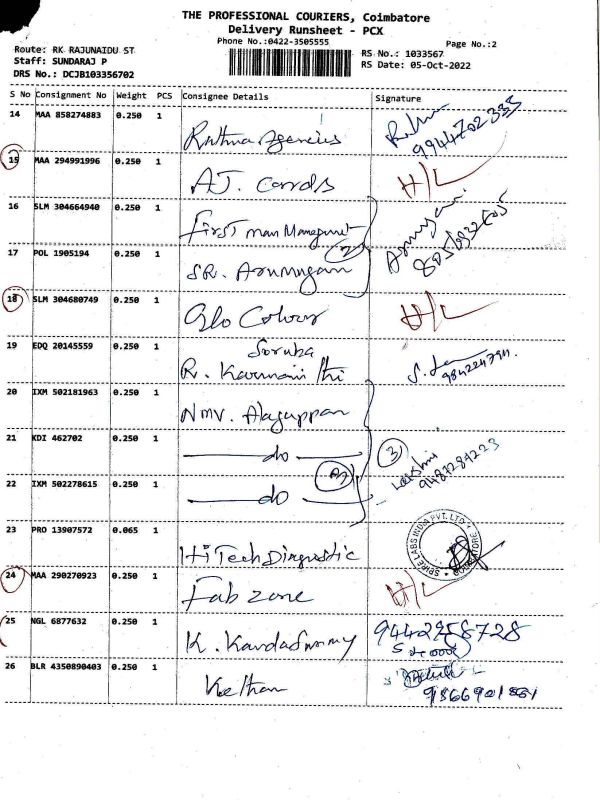 THE PROFESSIONAL COURIERS, Coimbatore
Delivery Runsheet - PCX
Phone No.:0422-3505555
Page No.:2
Route: RK RAJUNAIDU ST
Staff: SUNDARAJ P
DRS No.: DCJB103356702
RS No.: 1033567
RS Date: 05-Oct-2022
S No Consignment No Weight PCS Consignee Details Signature
14 MAA 858274883 0.250 1 Ratna Agencies
9944702335
15 MAA 294991996 0.250 1 A.J. Cards H/L
16 SLM 304664940 0.250 1 First man Management
17 POL 1905194 0.250 1 SR. Arumugam 2 Arumugam
18 SLM 304680749 0.250 1 Glo Colour H/L
19 EDQ 20145559 0.250 1 R.
20 IXM 502181963 0.250 1 NMV. Alagappan
21 KDI 462702 0.250 1 do 3
22 IXM 502278615 0.250 1 do 3 Lakshmi
23 PRO 13907572 0.065 1 HiTech Diagnostic
SPIRE LABS INDIA PVT. LTD
24 MAA 290270923 0.250 1 Fab zone H/L
25 NGL 6877632 0.250 1 K. Kandaswamy
26 BLR 4350890403 0.250 1 Kethan